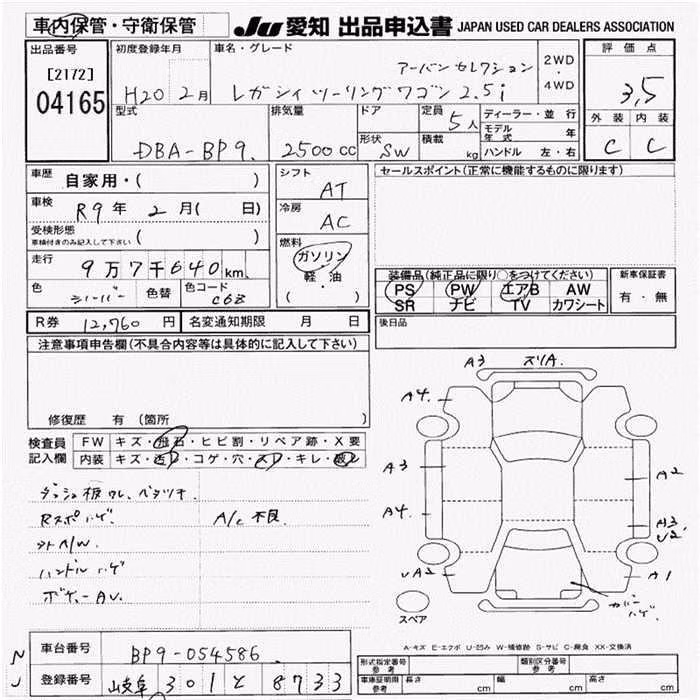 車内保管・守衛保管 JU 愛知 出品申込書 JAPAN USED CAR DEALERS ASSOCIATION
出品番号 初度登録年月 車名・グレード 評価点
[2172] アーバンセレクション 2WD・4WD
04165 H20 2月 レガシィツーリングワゴン 2.5i 3,5
型式 排気量 ドア 定員 5人 ディーラー・並行 外装 内装
モデル年式 年
DBA-BP9. 2500cc 形状 SW 積載 kg ハンドル 左・右 C C
車歴 自家用・( ) シフト AT セールスポイント(正常に機能するものに限ります)
車検 R9年 2月( 日) 冷房 AC
受検形態 ( )
車検付きのみ記入して下さい
燃料 ガソリン 軽・油 ( )
走行 9万7千640km 装備品(純正品に限り○をつけてください) 新車保証書
色 シルバー 色替 色コード C6B PS PW エアB AW 有・無
SR ナビ TV カワシート
R券 12,760円 名変通知期限 月 日 後日品
注意事項申告欄(不具合内容等は具体的に記入して下さい)
A3 ズリA.
A4.
修復歴 有 (箇所 )
検査員 FW キズ・飛石・ヒビ割・リペア跡・X要
記入欄 内装 キズ・汚レ・コゲ・穴・スレ・キレ・破レ
A3 A2
ダッシュ板ワレ、ベタツキ.
Rスポハゲ. A/C 不良 A4. A3 U2
外A/W.
ハンドルハゲ UA2 A1
ボデーAU. カバーハゲ.
スペア
A-キズ E-エクボ U-凹み W-補修跡 S-サビ C-腐食 XX-交換済
車台番号 BP9-054586 型式指定番号 参考 類別区分番号 参考
NJ 登録番号 岐阜 301 と 8733 車庫証明用 参考 長さ cm 幅 cm 高さ cm